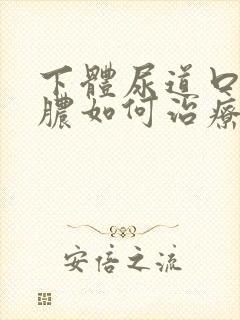 下體尿道口
膿如何治療
安倍之流